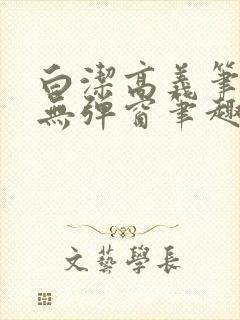 白潔高義筆
無彈窗筆趣
文藝學長